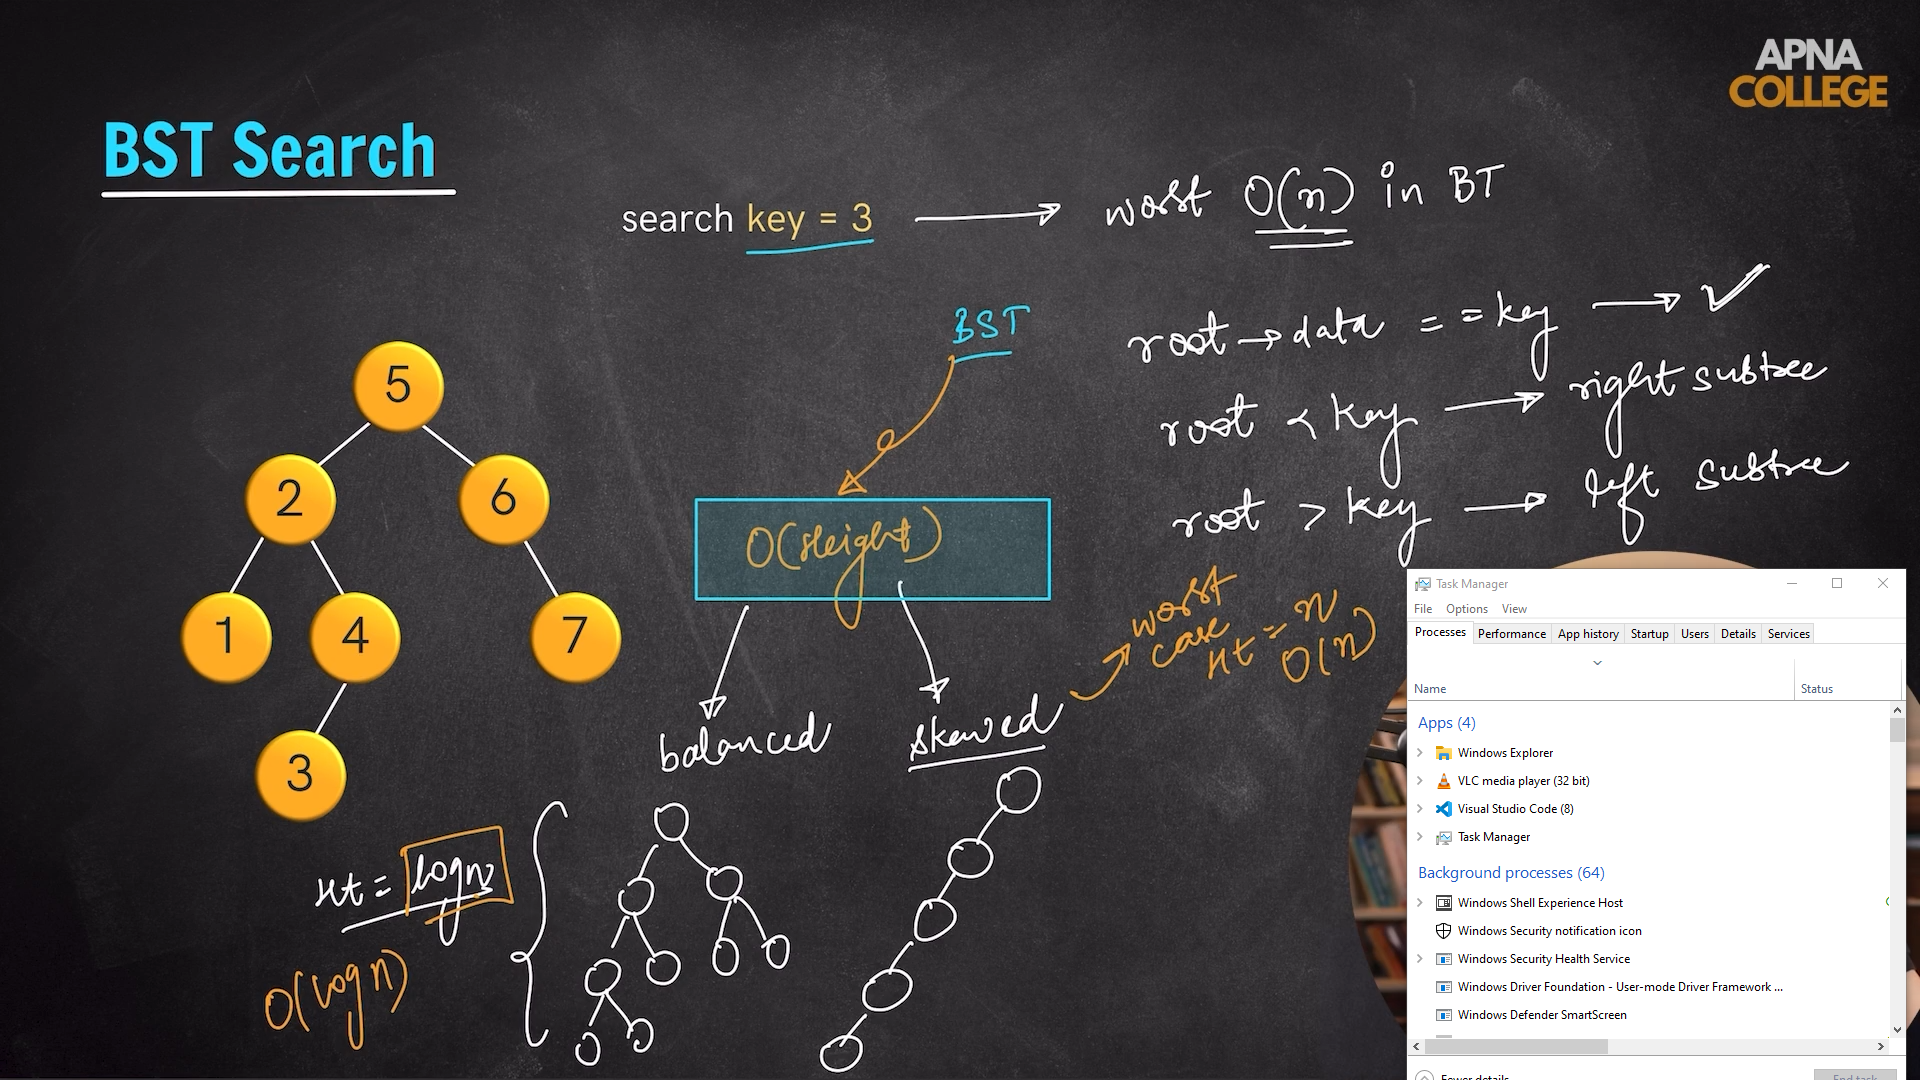 APNA
COLLEGE
BST Search
search key = 3
worst O(n) in BT
BST
root → data == key → ✓
root < key → right subtree
root > key → left subtree
5
2
6
1
4
7
3
O(Height)
worst
case
Ht = n
O(n)
balanced
skewed
Ht = logn
O(logn)
Task Manager
File Options View
Processes Performance App history Startup Users Details Services
Name Status
Apps (4)
Windows Explorer
VLC media player (32 bit)
Visual Studio Code (8)
Task Manager
Background processes (64)
Windows Shell Experience Host
Windows Security notification icon
Windows Security Health Service
Windows Driver Foundation - User-mode Driver Framework ...
Windows Defender SmartScreen
Fewer details
End task